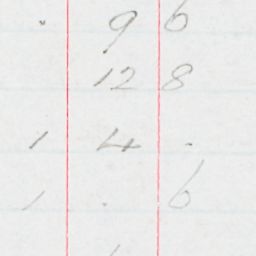 . 9 6
12 8
1 4 .
1 . 6